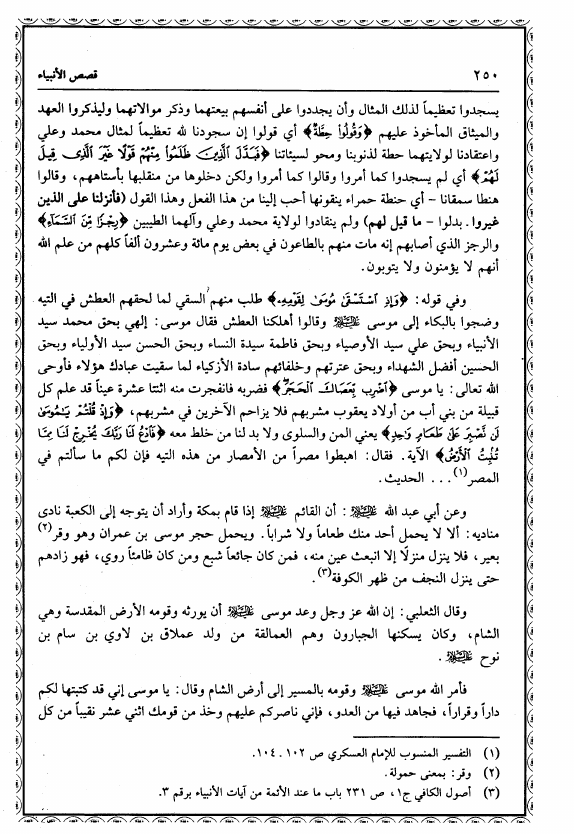 ٢٥٠ قصص الأنبياء
يسجدوا تعظيماً لذلك المثال وأن يجددوا على أنفسهم بيعتهما وذكر موالاتهما وليذكروا العهد
والميثاق المأخوذ عليهم ﴿وَقُولُوا حِطَّةٌ﴾ أي قولوا إن سجودنا لله تعظيماً لمثال محمد وعلي
واعتقادنا لولايتهما حطة لذنوبنا ومحو لسيئاتنا ﴿فَبَدَّلَ الَّذِينَ ظَلَمُوا مِنْهُمْ قَوْلًا غَيْرَ الَّذِي قِيلَ
لَهُمْ﴾ أي لم يسجدوا كما أمروا وقالوا كما أمروا ولكن دخلوها من منقلبها بأستاههم، وقالوا
هنطا سمقانا – أي حنطة حمراء ينقونها أحب إلينا من هذا الفعل وهذا القول (فأنزلنا على الذين
غيروا. بدلوا – ما قيل لهم) ولم ينقادوا لولاية محمد وعلي وآلهما الطيبين ﴿رِجْزًا مِّنَ السَّمَاءِ﴾
والرجز الذي أصابهم إنه مات منهم بالطاعون في بعض يوم مائة وعشرون ألفاً كلهم من علم الله
أنهم لا يؤمنون ولا يتوبون.
وفي قوله: ﴿وَإِذِ اسْتَسْقَىٰ مُوسَىٰ لِقَوْمِهِ﴾ طلب منهم السقي لما لحقهم العطش في التيه
وضجوا بالبكاء إلى موسى عليه السلام وقالوا أهلكنا العطش فقال موسى: إلهي بحق محمد سيد
الأنبياء وبحق علي سيد الأوصياء وبحق فاطمة سيدة النساء وبحق الحسن سيد الأولياء وبحق
الحسين أفضل الشهداء وبحق عترتهم وخلفائهم سادة الأزكياء لما سقيت عبادك هؤلاء فأوحى
الله تعالى: يا موسى ﴿اضْرِب بِّعَصَاكَ الْحَجَرَ﴾ فضربه فانفجرت منه اثنتا عشرة عيناً قد علم كل
قبيلة من بني أب من أولاد يعقوب مشربهم فلا يزاحم الآخرين في مشربهم، ﴿وَإِذْ قُلْتُمْ يَا مُوسَىٰ
لَن نَّصْبِرَ عَلَىٰ طَعَامٍ وَاحِدٍ﴾ يعني المن والسلوى ولا بد لنا من خلط معه ﴿فَادْعُ لَنَا رَبَّكَ يُخْرِجْ لَنَا مِمَّا
تُنبِتُ الْأَرْضُ﴾ الآية. فقال: اهبطوا مصراً من الأمصار من هذه التيه فإن لكم ما سألتم في
المصر(١)... الحديث.
وعن أبي عبد الله عليه السلام: أن القائم عليه السلام إذا قام بمكة وأراد أن يتوجه إلى الكعبة نادى
مناديه: ألا لا يحمل أحد منك طعاماً ولا شراباً. ويحمل حجر موسى بن عمران وهو وقر(٢)
بعير، فلا ينزل منزلًا إلا انبعث عين منه، فمن كان جائعاً شبع ومن كان ظامئاً روي، فهو زادهم
حتى ينزل النجف من ظهر الكوفة(٣).
وقال الثعلبي: إن الله عز وجل وعد موسى عليه السلام أن يورثه وقومه الأرض المقدسة وهي
الشام، وكان يسكنها الجبارون وهم العمالقة من ولد عملاق بن لاوي بن سام بن
نوح عليه السلام.
فأمر الله موسى عليه السلام وقومه بالمسير إلى أرض الشام وقال: يا موسى إني قد كتبتها لكم
داراً وقراراً، فجاهد فيها من العدو، فإني ناصركم عليهم وخذ من قومك اثني عشر نقيباً من كل
(١) التفسير المنسوب للإمام العسكري ص ١٠٢ـ١٠٤.
(٢) وقر: بمعنى حمولة.
(٣) أصول الكافي ج١، ص ٢٣١ باب ما عند الأئمة من آيات الأنبياء برقم ٣.